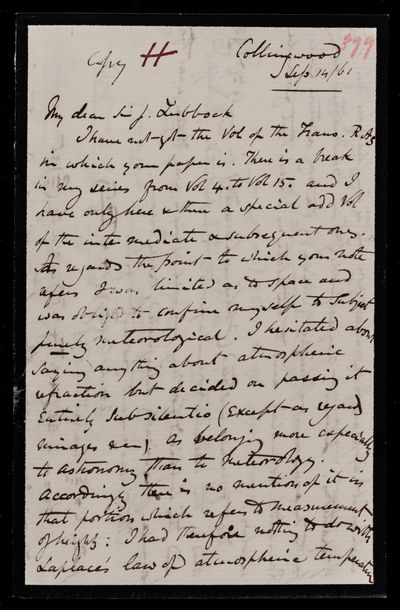 Copy H
Collingwood 399
Sep. 14/61
My dear Sir J. Lubbock
I have not got the Vol of the Trans. R.A.S
in which your paper is. There is a break
in my series from Vol 4. to Vol 15. and I
have only here & there a special odd Vol
of the intermediate & subsequent ones.
As regards the point to which your note
refers I was limited as to space and
was obliged to confine myself to subject
purely meteorological. I hesitated about
saying anything about atmospheric
refraction but decided on passing it
entirely sub silentio (Except as regards
mirages &c), as belonging more especially
to astronomy than to meteorology.
Accordingly there is no mention of it in
that portion which refers to measurement
of heights: I had therefore nothing to do with
Laplace's law of atmospheric temperature